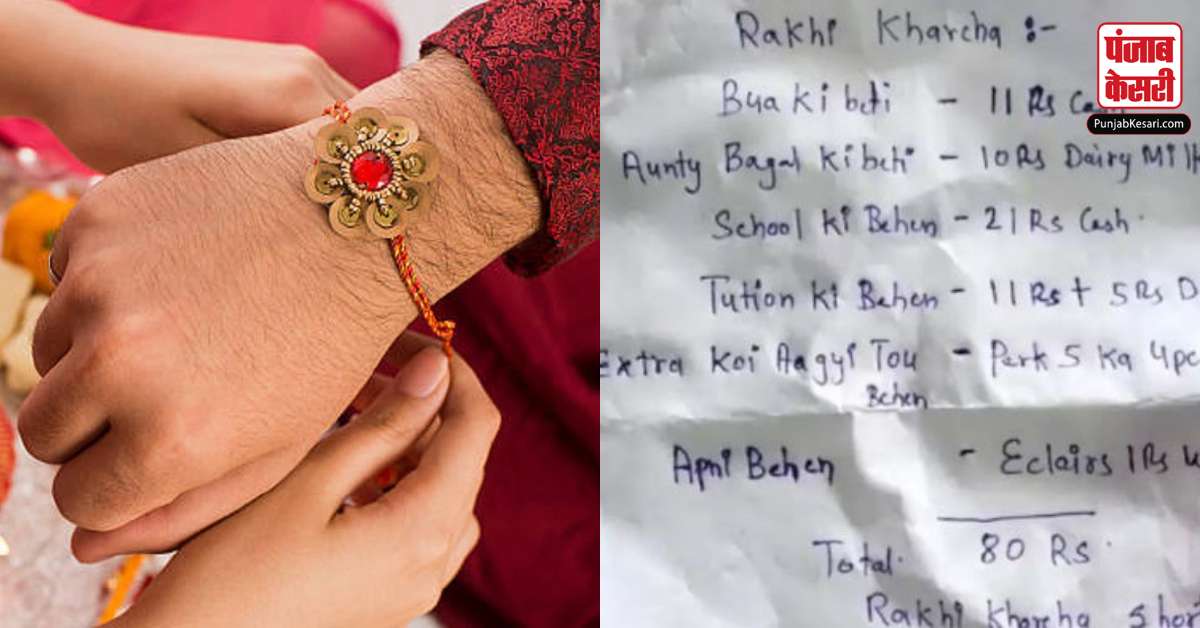 Rakhi Kharcha :-
पंजाब
केसरी
PunjabKesari.com
Bua ki beti - 11 Rs
Aunty Bagal ki beti - 10 Rs Dairy
School ki Behen - 21 Rs Cash
Tution ki Behen - 11 Rs + 5 Rs D
Extra Koi Aagyi Tou - Perk 5 Ka 4
Behen
Apni Behen - Eclairs 1 Rs
Total. 80 Rs.
Rakhi Kharcha